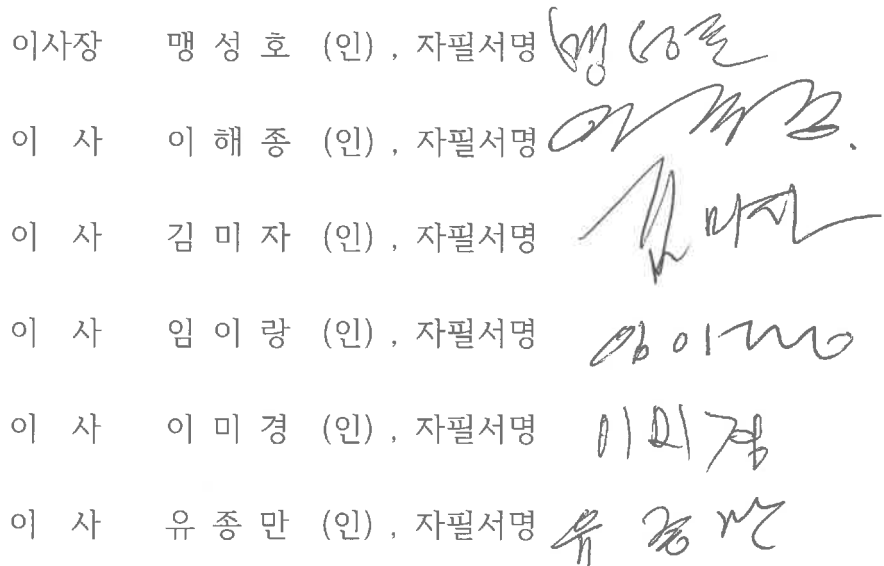 이사장 맹 성 호 (인) , 자필서명 맹성호
이 사 이 해 종 (인) , 자필서명
이 사 김 미 자 (인) , 자필서명 김미자
이 사 임 이 랑 (인) , 자필서명 임이랑
이 사 이 미 경 (인) , 자필서명 이미경
이 사 유 종 만 (인) , 자필서명 유종만